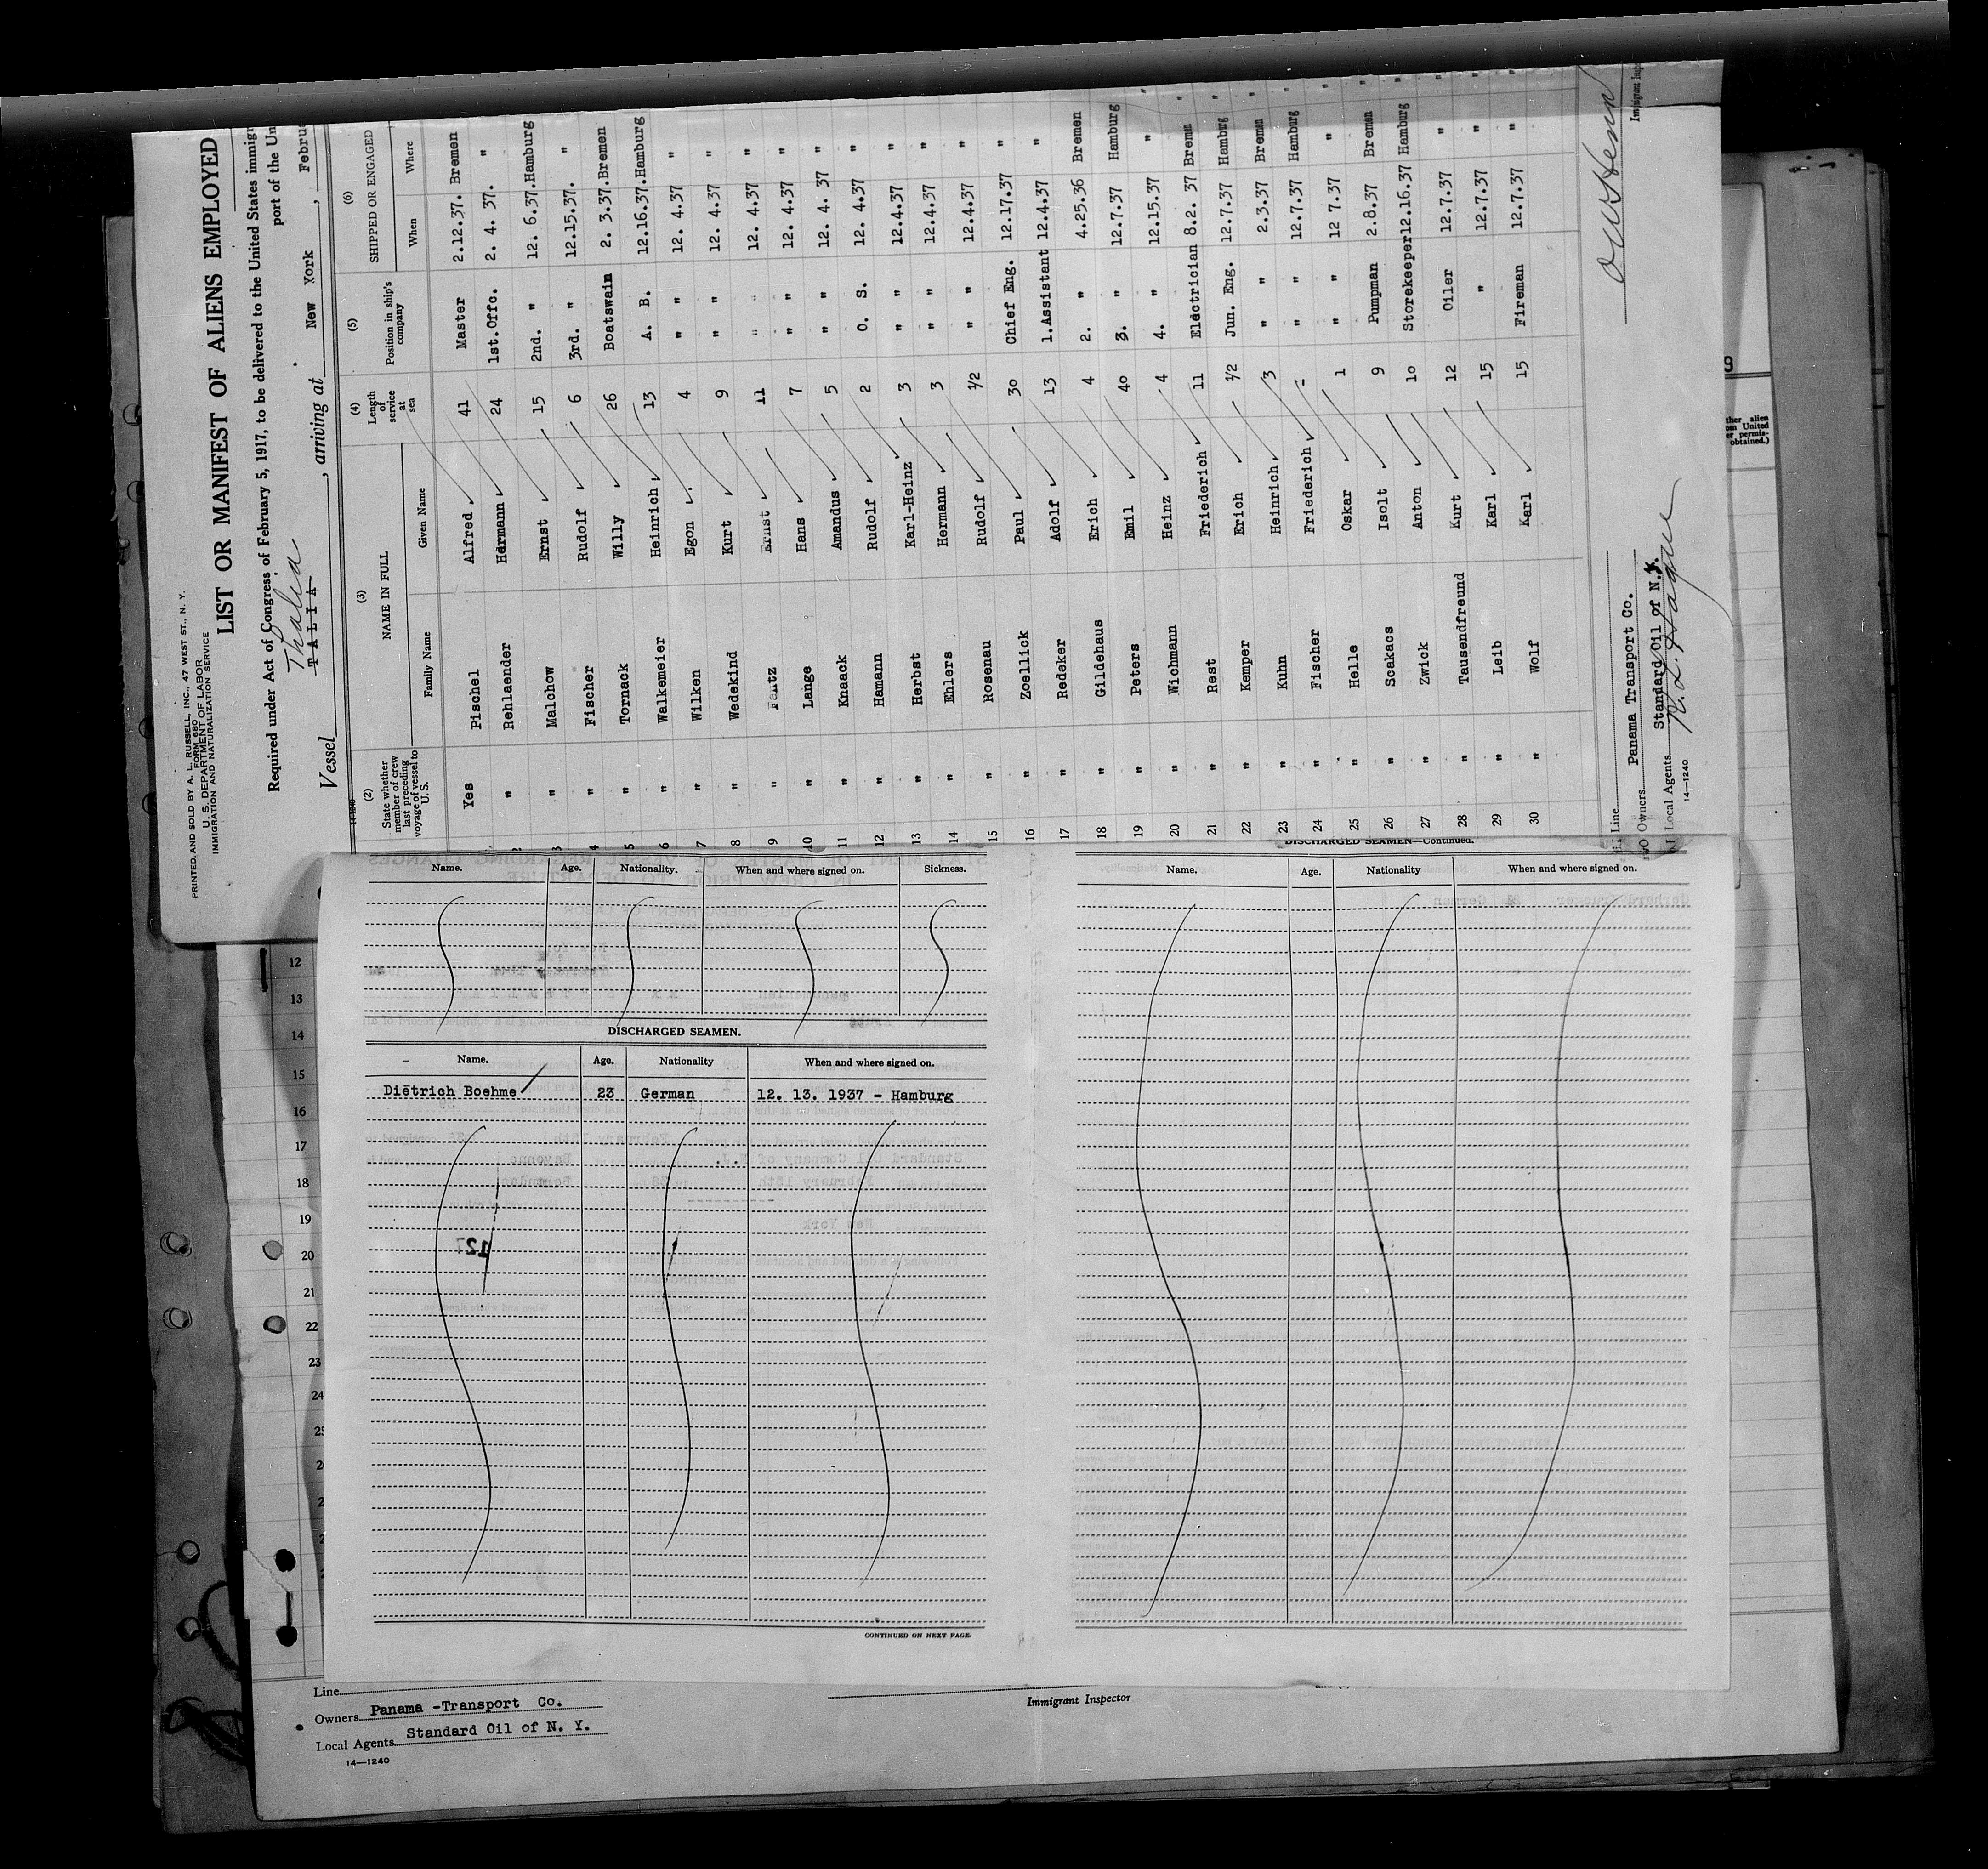 PRINTED AND SOLD BY A. L. RUSSELL, INC., 47 WEST ST., N. Y.
FORM 680
U. S. DEPARTMENT OF LABOR
IMMIGRATION AND NATURALIZATION SERVICE
LIST OR MANIFEST OF ALIENS EMPLOYED
Required under Act of Congress of February 5, 1917, to be delivered to the United States immigr
port of the Un
Thalia
Vessel TALIA, arriving at New York, Februa
(2) (3) (4) (5) (6)
State whether member of crew last preceding voyage of vessel to U. S. NAME IN FULL Length of service at sea Position in ship's company SHIPPED OR ENGAGED
Family Name Given Name When Where
Yes Pischel Alfred 41 Master 2.12.37. Bremen
2 " Rehlaender Hermann 24 1st.Offc. 2. 4. 37. "
3 " Malchow Ernst 15 2nd. " 12. 6.37.Hamburg
4 " Fischer Rudolf 6 3rd. " 12.15.37. "
5 " Tornack Willy 26 Boatswain 2. 3.37.Bremen
6 " Walkemeier Heinrich 13 A. B. 12.16.37.Hamburg
7 " Wilken Egon 4 " " 12. 4.37 "
8 " Wedekind Kurt 9 " " 12. 4.37 "
9 " Ernst 11 " " 12. 4.37 "
10 " Lange Hans 7 " " 12. 4.37 "
11 " Knaack Amandus 5 " " 12. 4. 37 "
12 " Hamann Rudolf 2 O. S. 12. 4.37 "
13 " Herbst Karl-Heinz 3 " " 12.4.37 "
14 " Ehlers Hermann 3 " " 12.4.37 "
15 " Rosenau Rudolf 1/2 " " 12.4.37 "
16 " Zoellick Paul 30 Chief Eng. 12.17.37 "
17 " Redeker Adolf 13 1.Assistant 12.4.37 "
18 " Gildehaus Erich 4 2. " 4.25.36 Bremen
19 " Peters Emil 40 3. " 12.7.37 Hamburg
20 " Wichmann Heinz 4 4. " 12.15.37 "
21 " Rest Friederich 11 Electrician 8.2. 37 Bremen "
22 " Kemper Erich 1/2 Jun. Eng. 12.7.37 Hamburg "
23 " Kuhn Heinrich 3 " " 2.3.37 Bremen "
24 " Fischer Friederich " " 12.7.37 Hamburg "
25 " Helle Oskar 1 " " 12 7.37 " "
26 " Scakacs Isolt 9 Pumpman 2.8.37 Bremen "
27 " Zwick Anton 10 Storekeeper12.16.37 Hamburg "
28 " Tausendfreund Kurt 12 Oiler 12.7.37 " "
29 " Leib Karl 15 " 12.7.37 " "
30 " Wolf Karl 15 Fireman 12.7.37 " "
Line
Owners Panama Transport Co.
Local Agents Standard Oil of N.
14—1240
Immigrant Insp
Name. Age. Nationality. When and where signed on. Sickness.
DISCHARGED SEAMEN.
Name. Age. Nationality When and where signed on.
Dietrich Boehme 23 German 12. 13. 1937 - Hamburg
CONTINUED ON NEXT PAGE.
DISCHARGED SEAMEN—Continued.
Name. Age. Nationality When and where signed on.
12
13
14
15
16
17
18
19
20
21
22
23
24
Line
Owners Panama -Transport Co.
Local Agents Standard Oil of N. Y.
14—1240
Immigrant Inspector
ther alien
om United
er permis-
obtained.)